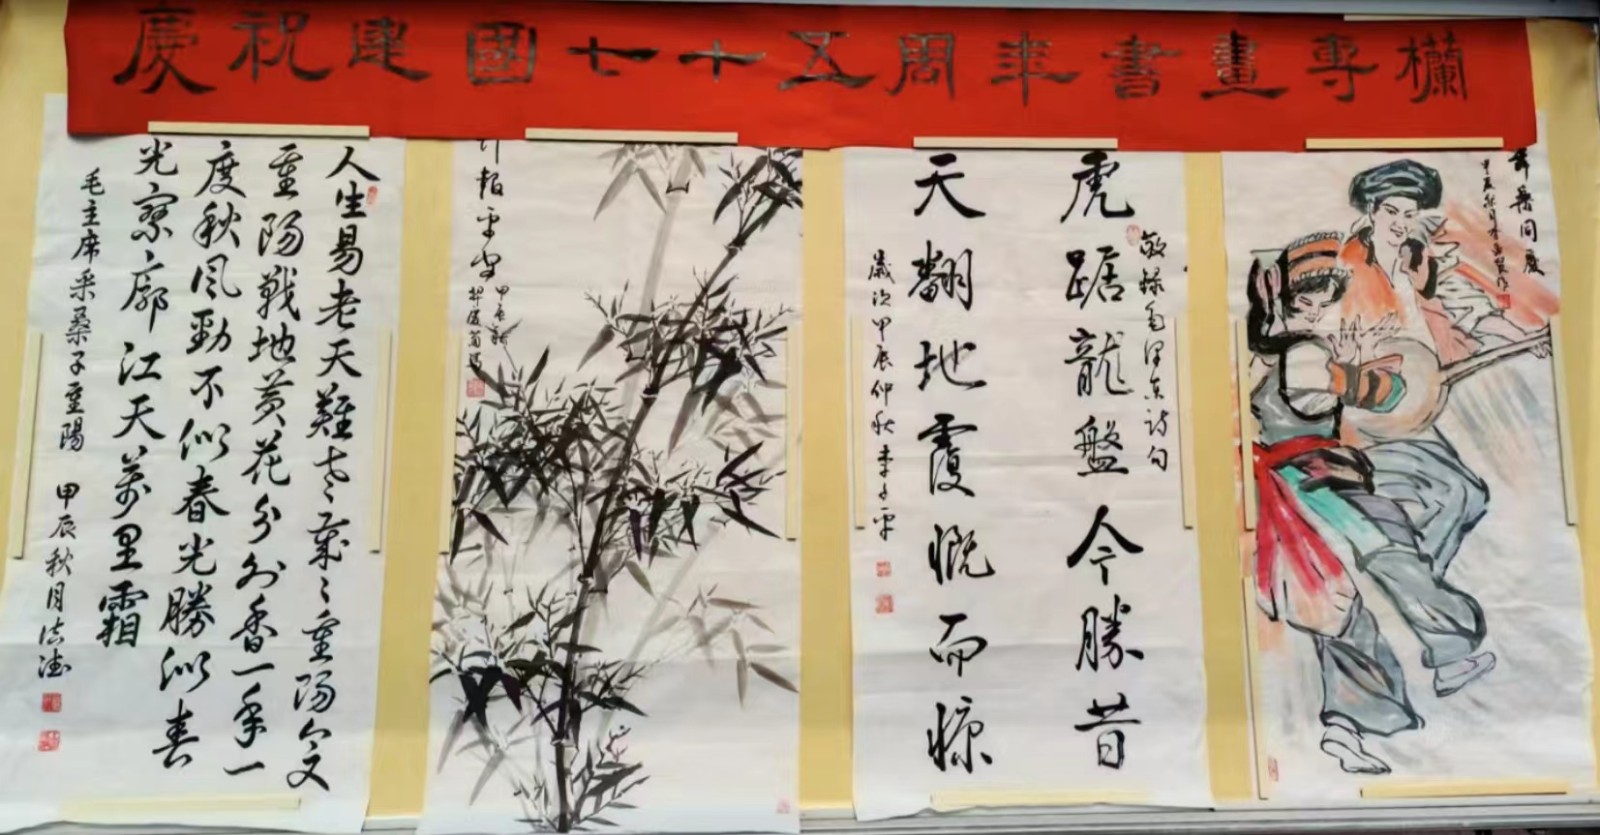 慶祝建國七十五周年書畫專欄
人生易老天難老歲〻重陽今又
重陽戰地黃花分外香一年一
度秋風勁不似春光勝似春
光寥廓江天萬里霜
毛主席采桑子重陽
甲辰秋月
竹報平安
虎踞龍盤今勝昔
敬錄毛澤東詩句
天翻地覆慨而慷
歲次甲辰仲秋
同慶